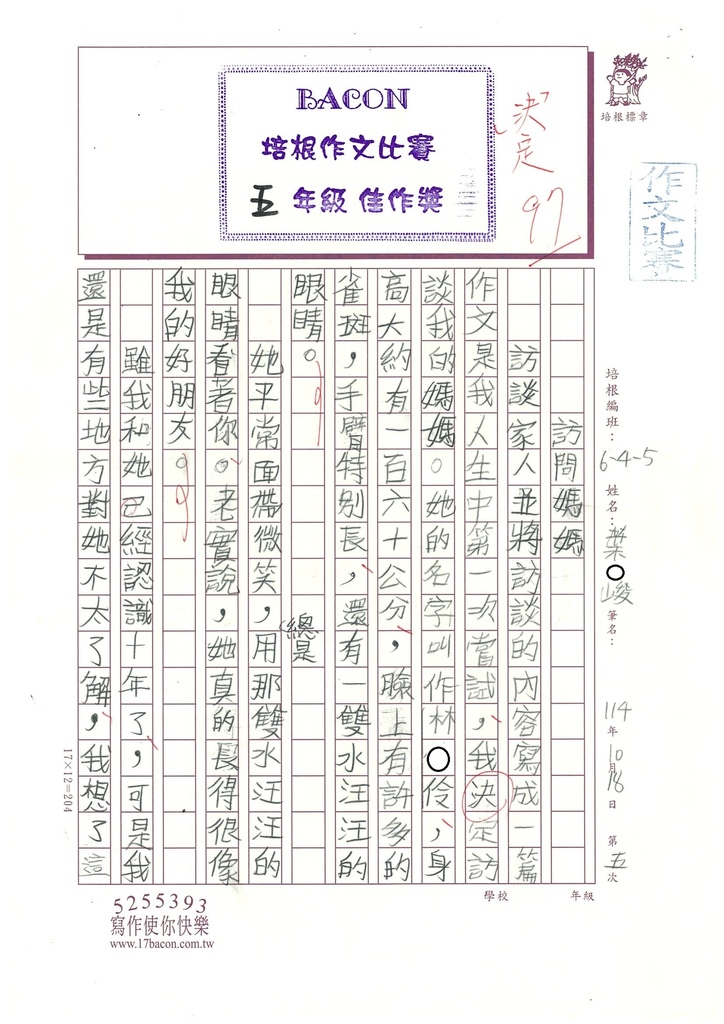 BACON
培根作文比賽
五 年級 佳作獎
「決」定
97
培根標章
作文比賽
培根編班：6-4-5 姓名：葉○峻 筆名：
114年10月18日 第五次
年級
學校
訪問媽媽
訪談家人並將訪談的內容寫成一篇
作文是我人生中第一次嘗試，我決定訪
談我的媽媽。她的名字叫作林○伶，身
高大約有一百六十公分，臉上有許多的
雀斑，手臂特別長，還有一雙水汪汪的
眼睛。
她平常面帶微笑，總是用那雙水汪汪的
眼睛看著你。老實說，她真的長得很像
我的好朋友。
雖我和她已經認識十年了，可是我
還是有些地方對她不太了解，我想了這
17×12=204
5255393
寫作使你快樂
www.17bacon.com.tw